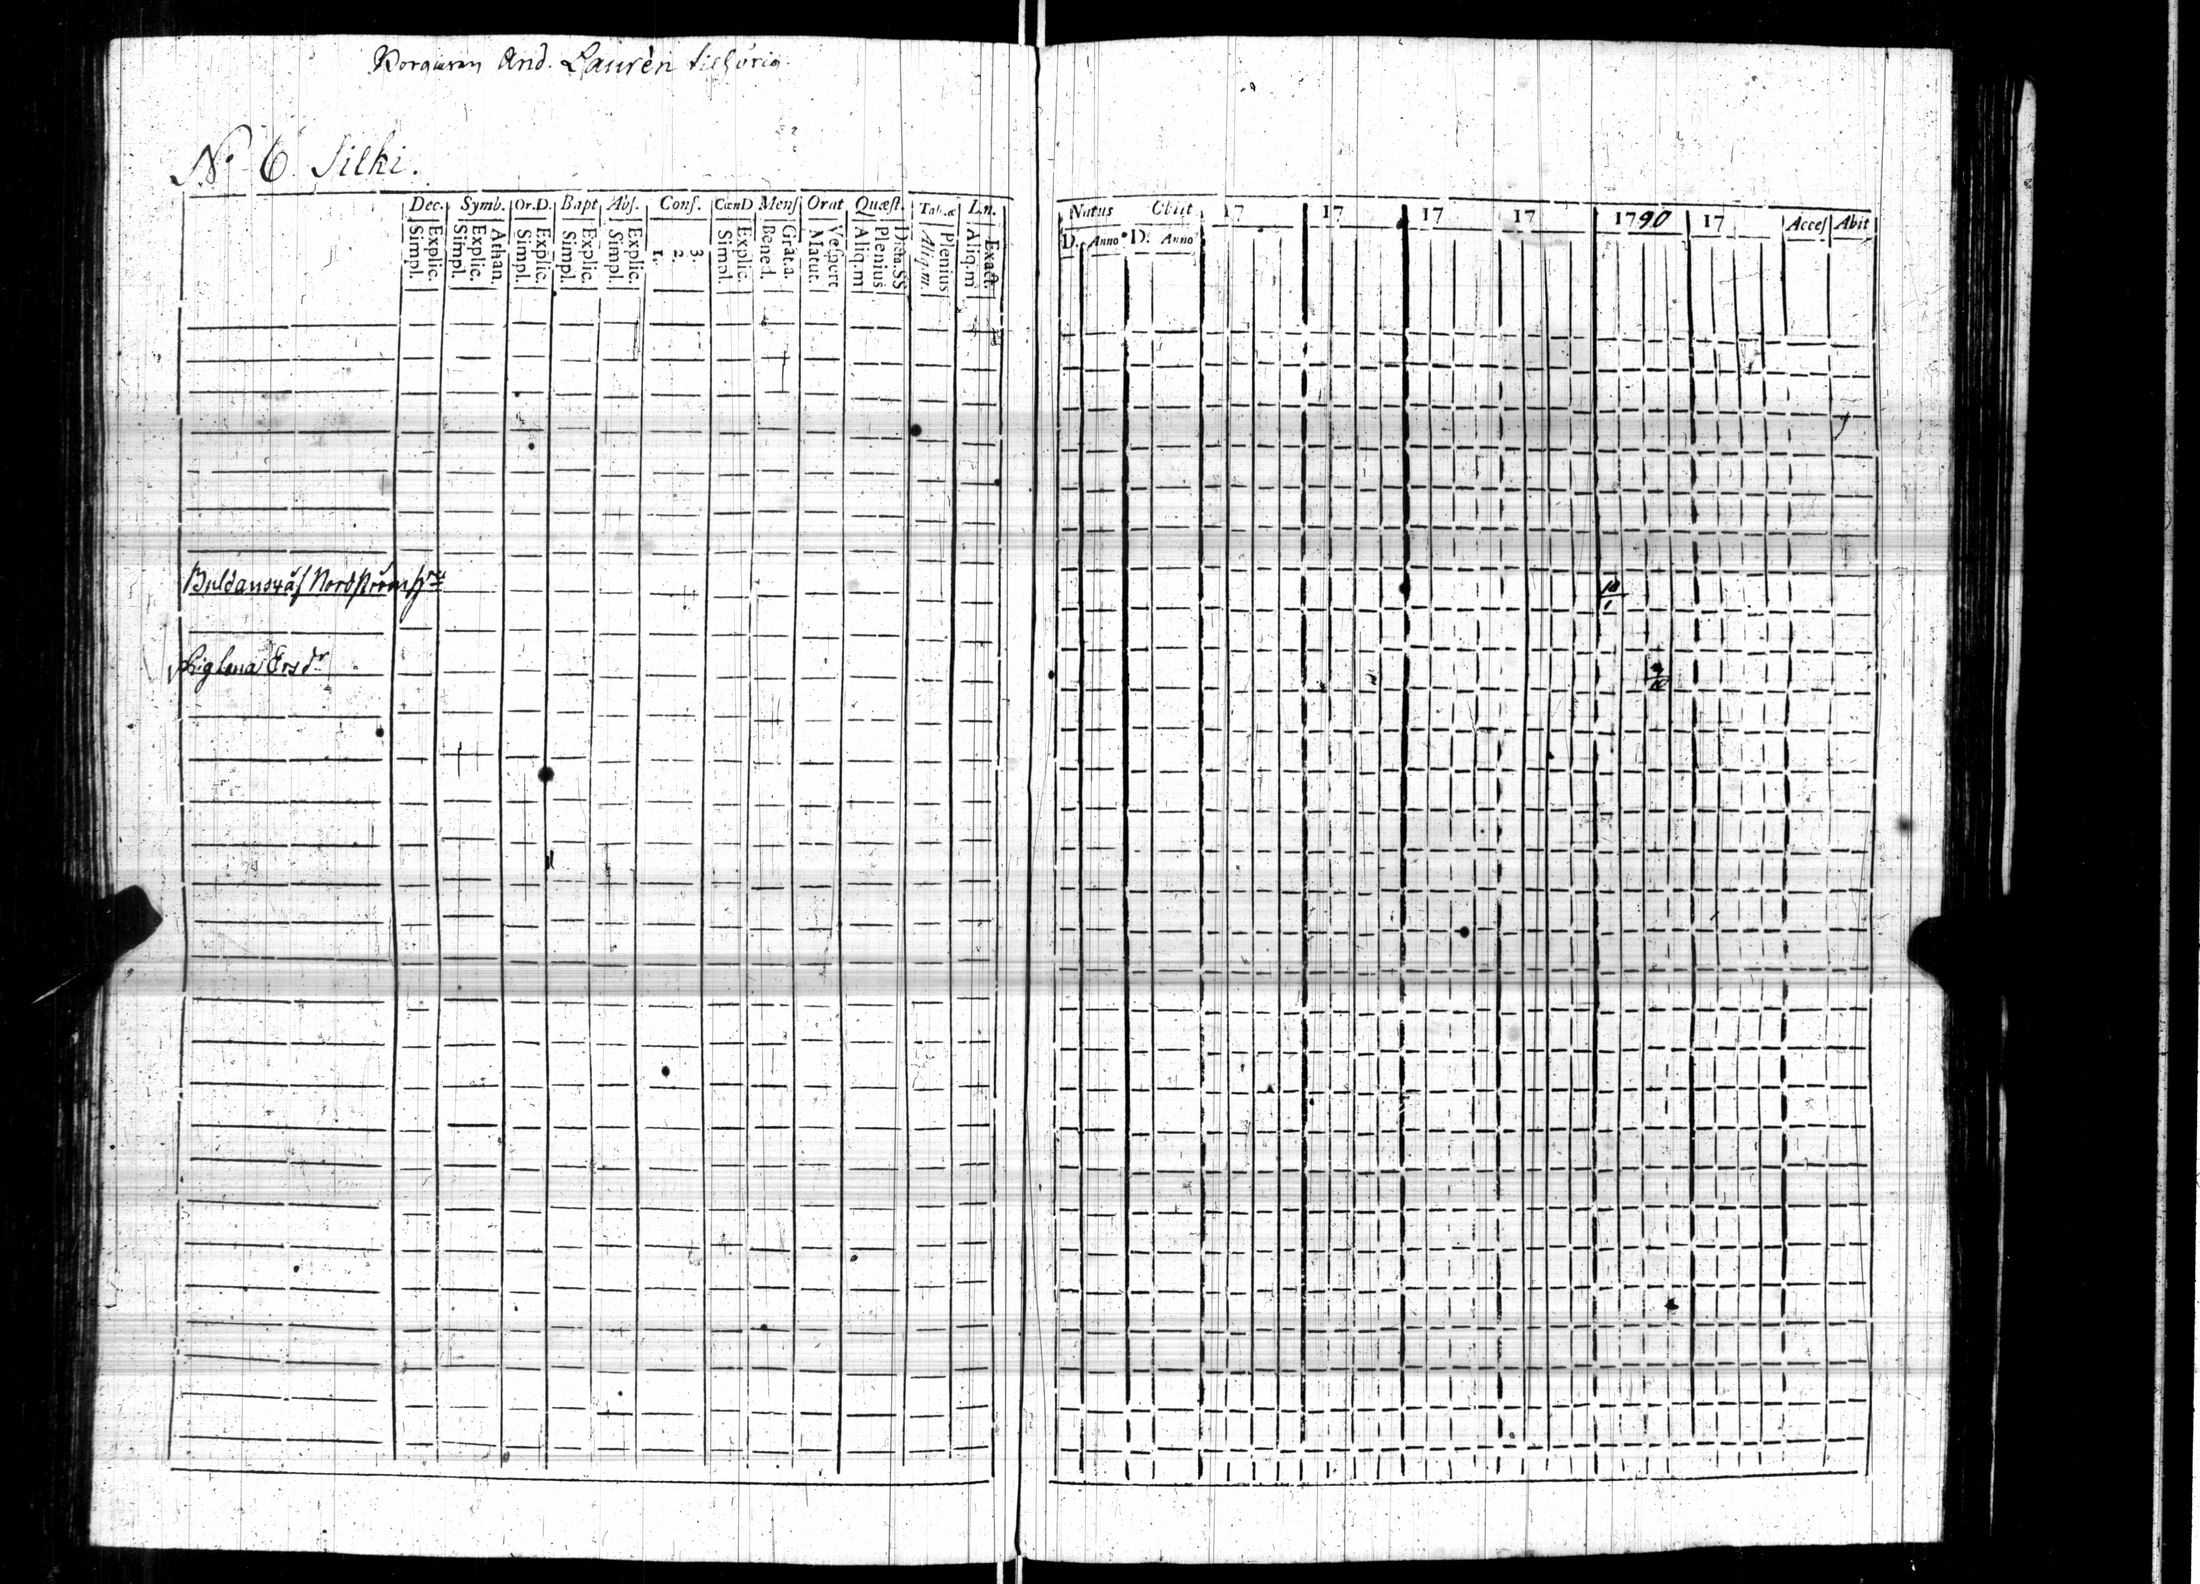 And. Laurèn tilhörig.
No 6 Silki.
Dec. Symb. Or.D. Bapt Abs. Conf. CœnD Mens Orat Quæst. Tab.æ Ln.
Explic. Simpl.
Athan. Explic. Simpl.
Explic. Simpl.
Explic. Simpl.
Explic. Simpl.
3. 2. 1.
Explic. Simpl.
Grat.a. Bened.
Vespert Matut.
Dicta.SS Plenius Aliq.m
Plenius Aliq.m.
Exact. Aliq.m
Natus Obiit 17 17 17 17 1790 17 Acces Abit
D. Anno D. Anno
10/1